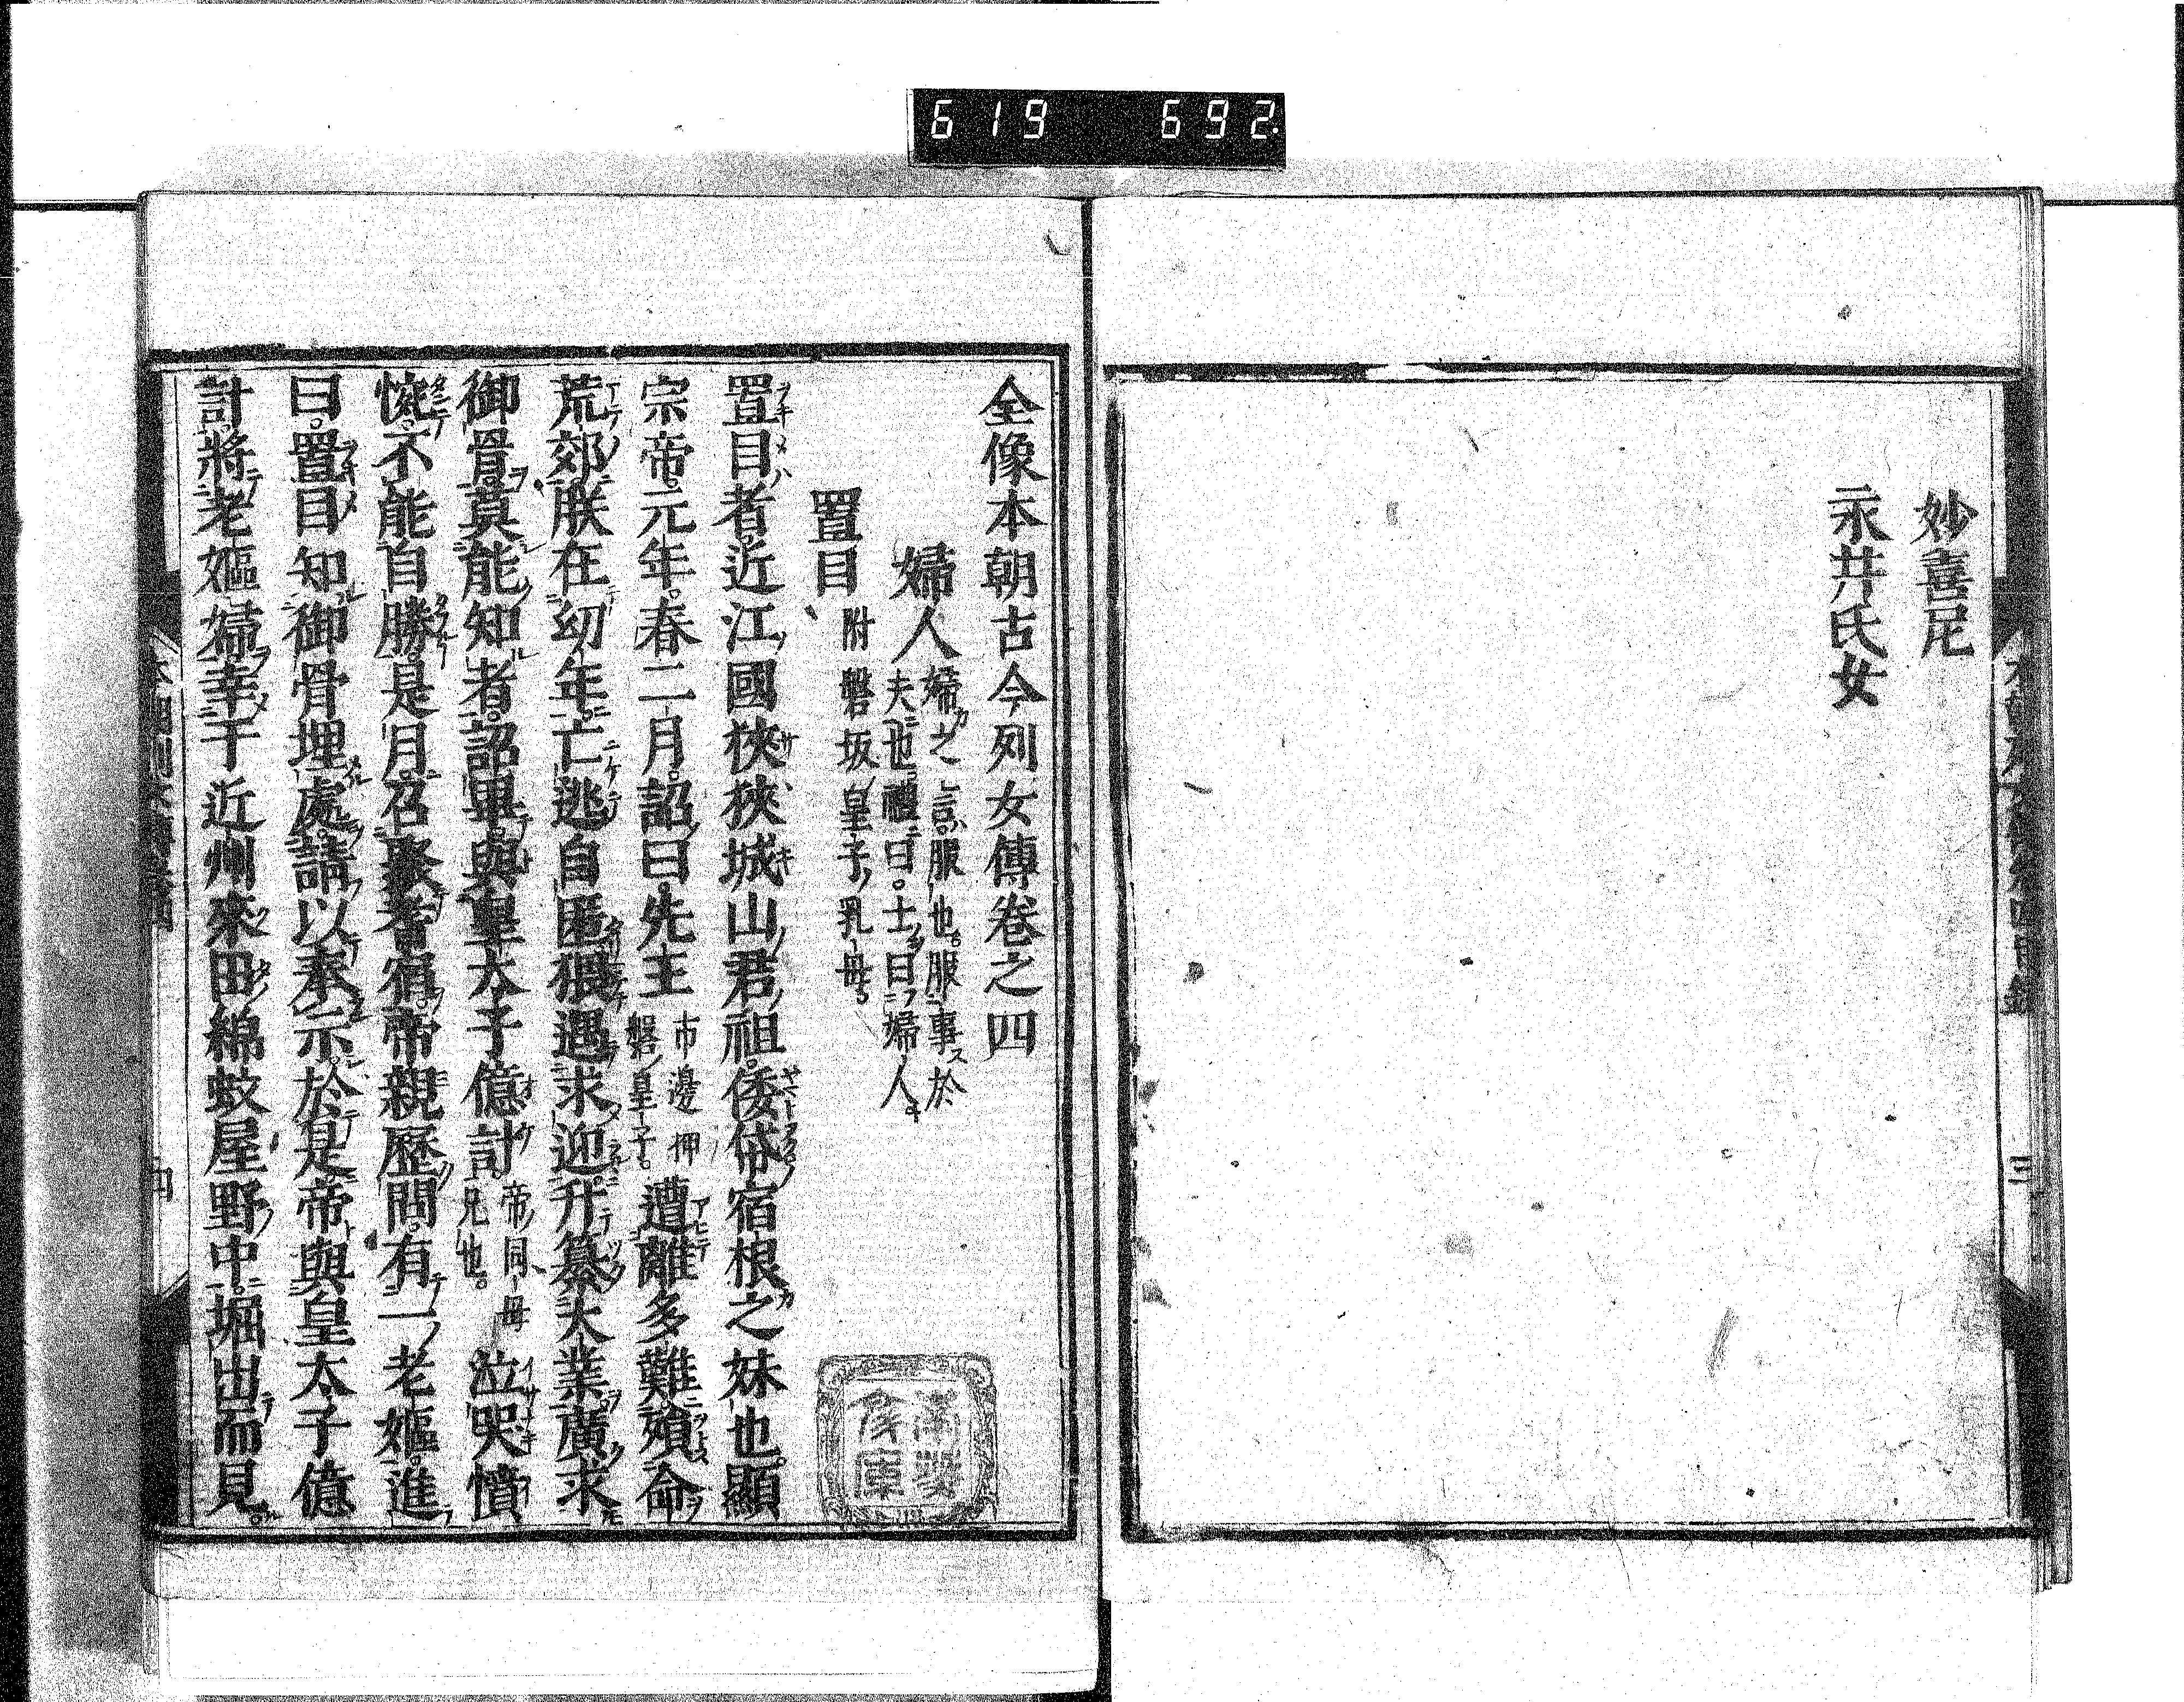 619 692
妙喜尼
永井氏女
三
全像本朝古今列女傳卷之四
婦人 婦之言服也服事於夫也禮曰士曰婦人
置目 附磐坂皇子乳母
置目者近江國狹狹城山君祖倭帒宿根之妹也顯
宗帝元年春二月詔曰先主市邊押磐皇子遭離多難殞命
荒郊朕在幼年亡逃自匿猥遇求迎升纂大業廣求
御骨莫能知者詔畢與皇太子億計帝同母兄也泣哭憤
惋不能自勝是月召聚耆宿帝親歷問有一老嫗進
曰置目知御骨埋處請以奉示於是帝與皇太子億
計將老嫗婦幸于近州來田綿蚊屋野中堀出而見